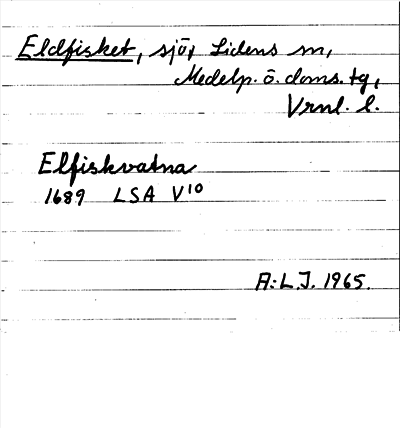 Eldfisket, sjö, Lidens sn,
Medelp. ö. doms. tg,
Vrnl. l.
Elfiskvatna
1689 LSA V10
A:L.J. 1965.